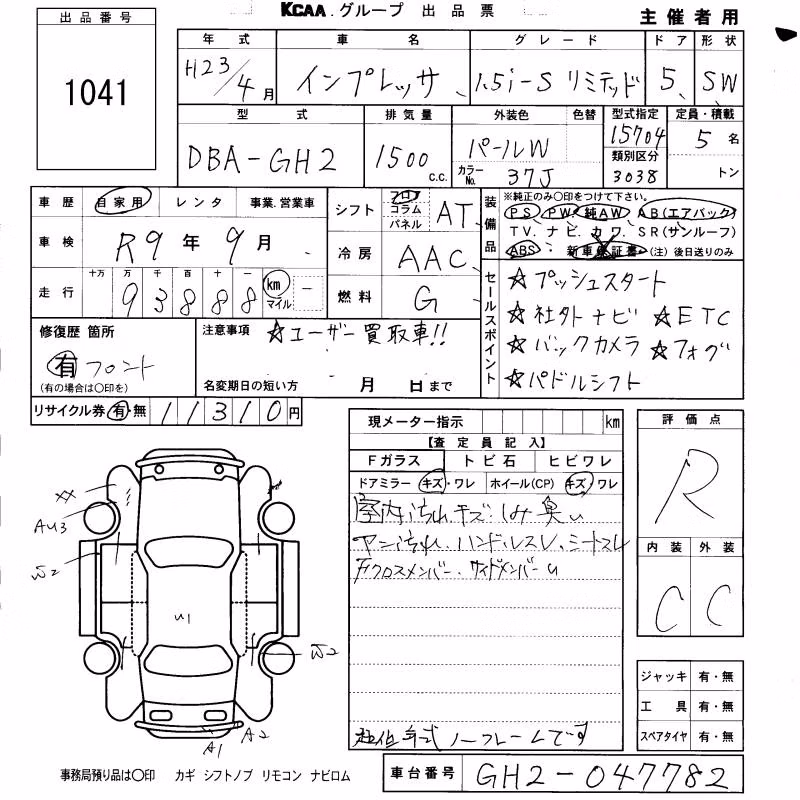 KCAA.グループ 出品票
主催者用
出品番号
1041
年式 車名 グレード ドア 形状
H23/4月 インプレッサ 1.5i-S リミテッド 5 SW
型式 排気量 外装色 色替 型式指定 定員・積載
DBA-GH2 1500 c.c. パールW 15704 5名
カラーNo. 37J 類別区分 3038 トン
車歴 自家用 レンタ 事業.営業車
シフト フロア コラム パネル AT
車検 R9年9月
冷房 AAC
走行 十万 万 千 百 十 一
93888 km マイル
燃料 G
装備品
※純正のみ○印をつけて下さい。
PS PW 純AW AB(エアバック)
TV. ナビ. カワ. SR(サンルーフ)
ABS 新車保証書 (注)後日送りのみ
セールスポイント
☆プッシュスタート
☆社外ナビ ☆ETC
☆バックカメラ ☆フォグ
☆パドルシフト
修復歴 箇所
有 フロント
(有の場合は○印を)
注意事項 ☆ユーザー買取車!!
名変期日の短い方 月 日まで
リサイクル券 有・無 11310円
現メーター指示 km
【査定員記入】
Fガラス トビ石 ヒビワレ
ドアミラー キズ・ワレ ホイール(CP) キズ・ワレ
室内汚れキズ.しみ臭い
ヤニ汚れ.ハンドルスレ.シートスレ
Fクロスメンバー.サイドメンバーU
年式 ノークレームです
評価点
R
内装 外装
C C
ジャッキ 有・無
工具 有・無
スペアタイヤ 有・無
XX
AU3
W2
U1
W2
A1 A2
事務局預り品は○印 カギ シフトノブ リモコン ナビロム
車台番号 GH2-047782